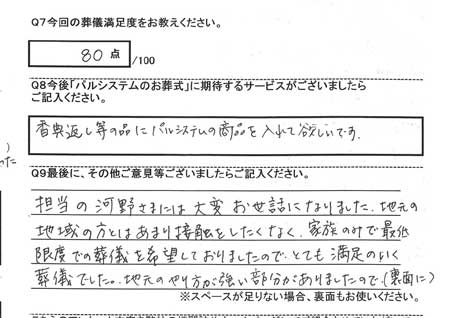 Q7今回の葬儀満足度をお教えください。
80 点 /100
Q8今後「パルシステムのお葬式」に期待するサービスがございましたら
ご記入ください。
香典返し等の品にパルシステムの商品を入れて欲しいです。
)
った
Q9最後に、その他ご意見等ございましたらご記入ください。
担当の河野さまには大変お世話になりました。地元の
地域の方とはあまり接触をしたくなく、家族のみで最低
限度での葬儀を希望しておりましたので、とても満足のいく
葬儀でした。地元のやり方が強い部分がありましたので、(裏面に)
※スペースが足りない場合、裏面もお使いください。